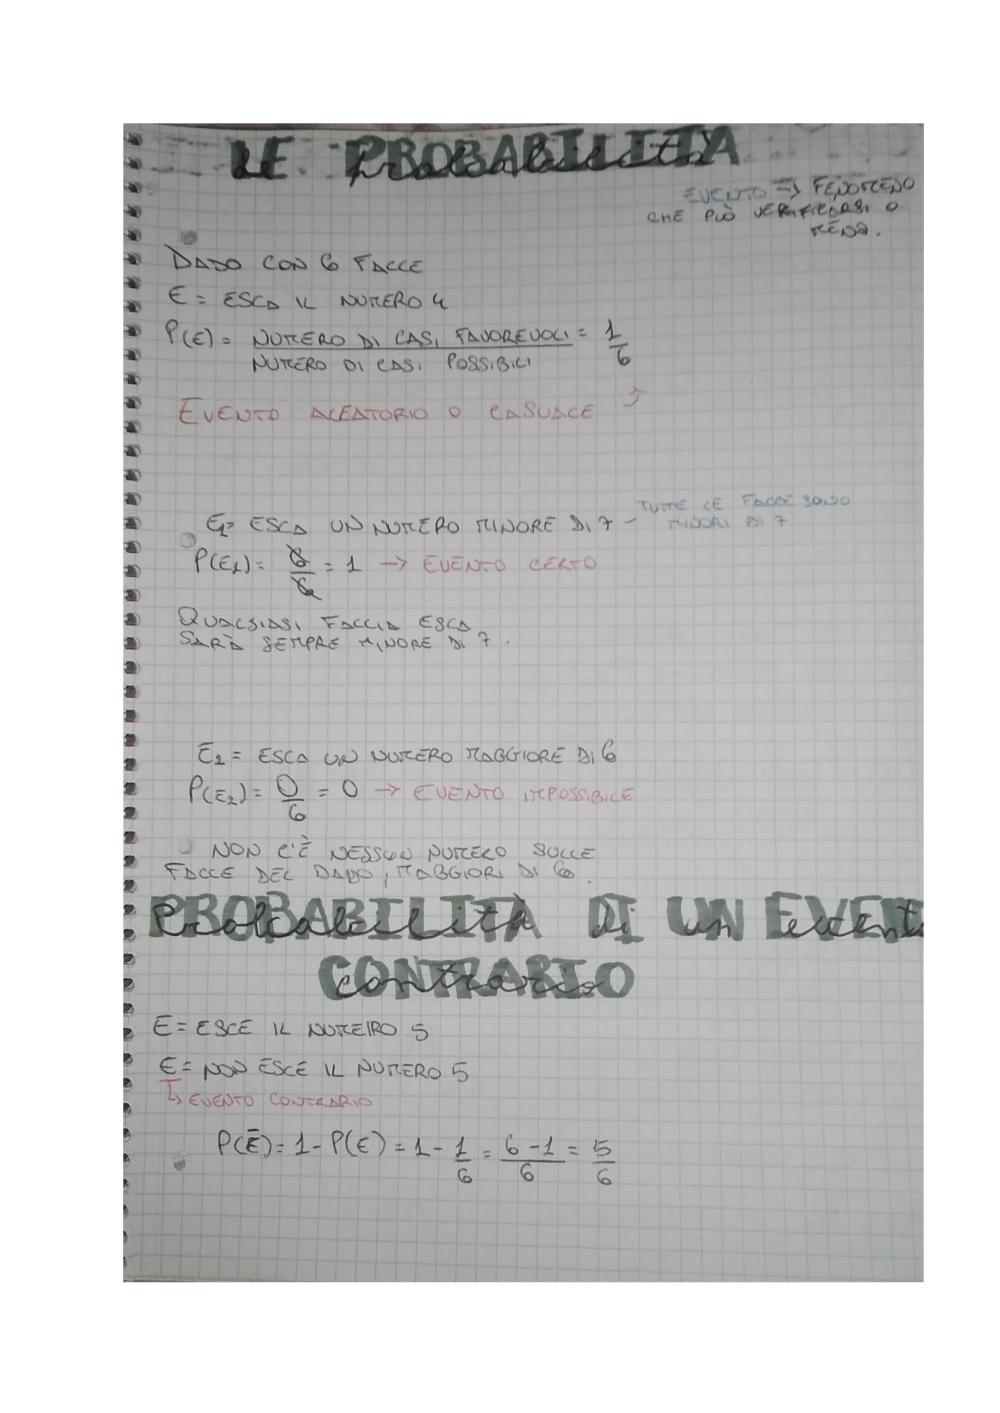 LE PROBABILITÀ
EVENTO => FENOMENO
CHE PUÒ VERIFICARSI O
MENO.
DADO CON 6 FACCE
E = ESCA IL NUMERO 4
P(E) = NUMERO DI CASI FAVOREVOLI / NUMERO DI CASI POSSIBILI = 1/6
EVENTO ALEATORIO O CASUALE
E1 = ESCA UN NUMERO MINORE DI 7 - TUTTE LE FACCE SONO
MINORI DI 7
P(E1) = 6/6 = 1 → EVENTO CERTO
QUALSIASI FACCIA ESCA
SARÀ SEMPRE MINORE DI 7.
E2 = ESCA UN NUMERO MAGGIORE DI 6
P(E2) = 0/6 = 0 → EVENTO IMPOSSIBILE
NON C'È NESSUN NUMERO SULLE
FACCE DEL DADO, MAGGIORI DI 6.
PROBABILITÀ DI UN EVENT
CONTRARIO
E = ESCE IL NUMEIRO 5
E = NON ESCE IL NUMERO 5
↳ EVENTO CONTRARIO
P(Ē) = 1 - P(E) = 1 - 1/6 = 6-1/6 = 5/6